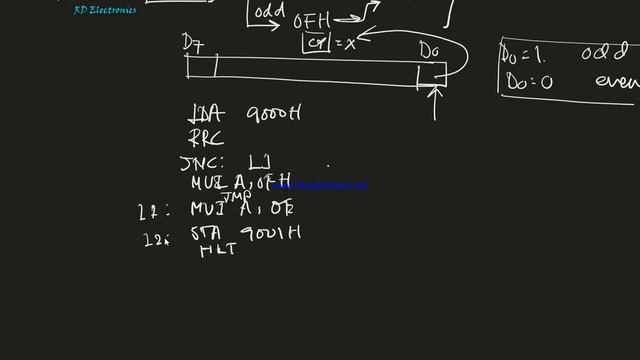 RD Electronics
odd
OFH
CY = x
D7
D0
D0=1. odd
D0=0 even
LDA 9000H
RRC
JNC: L1
MVI A, OFH
JMP
L1: MVI A, OE
L2: STA 9001H
HLT